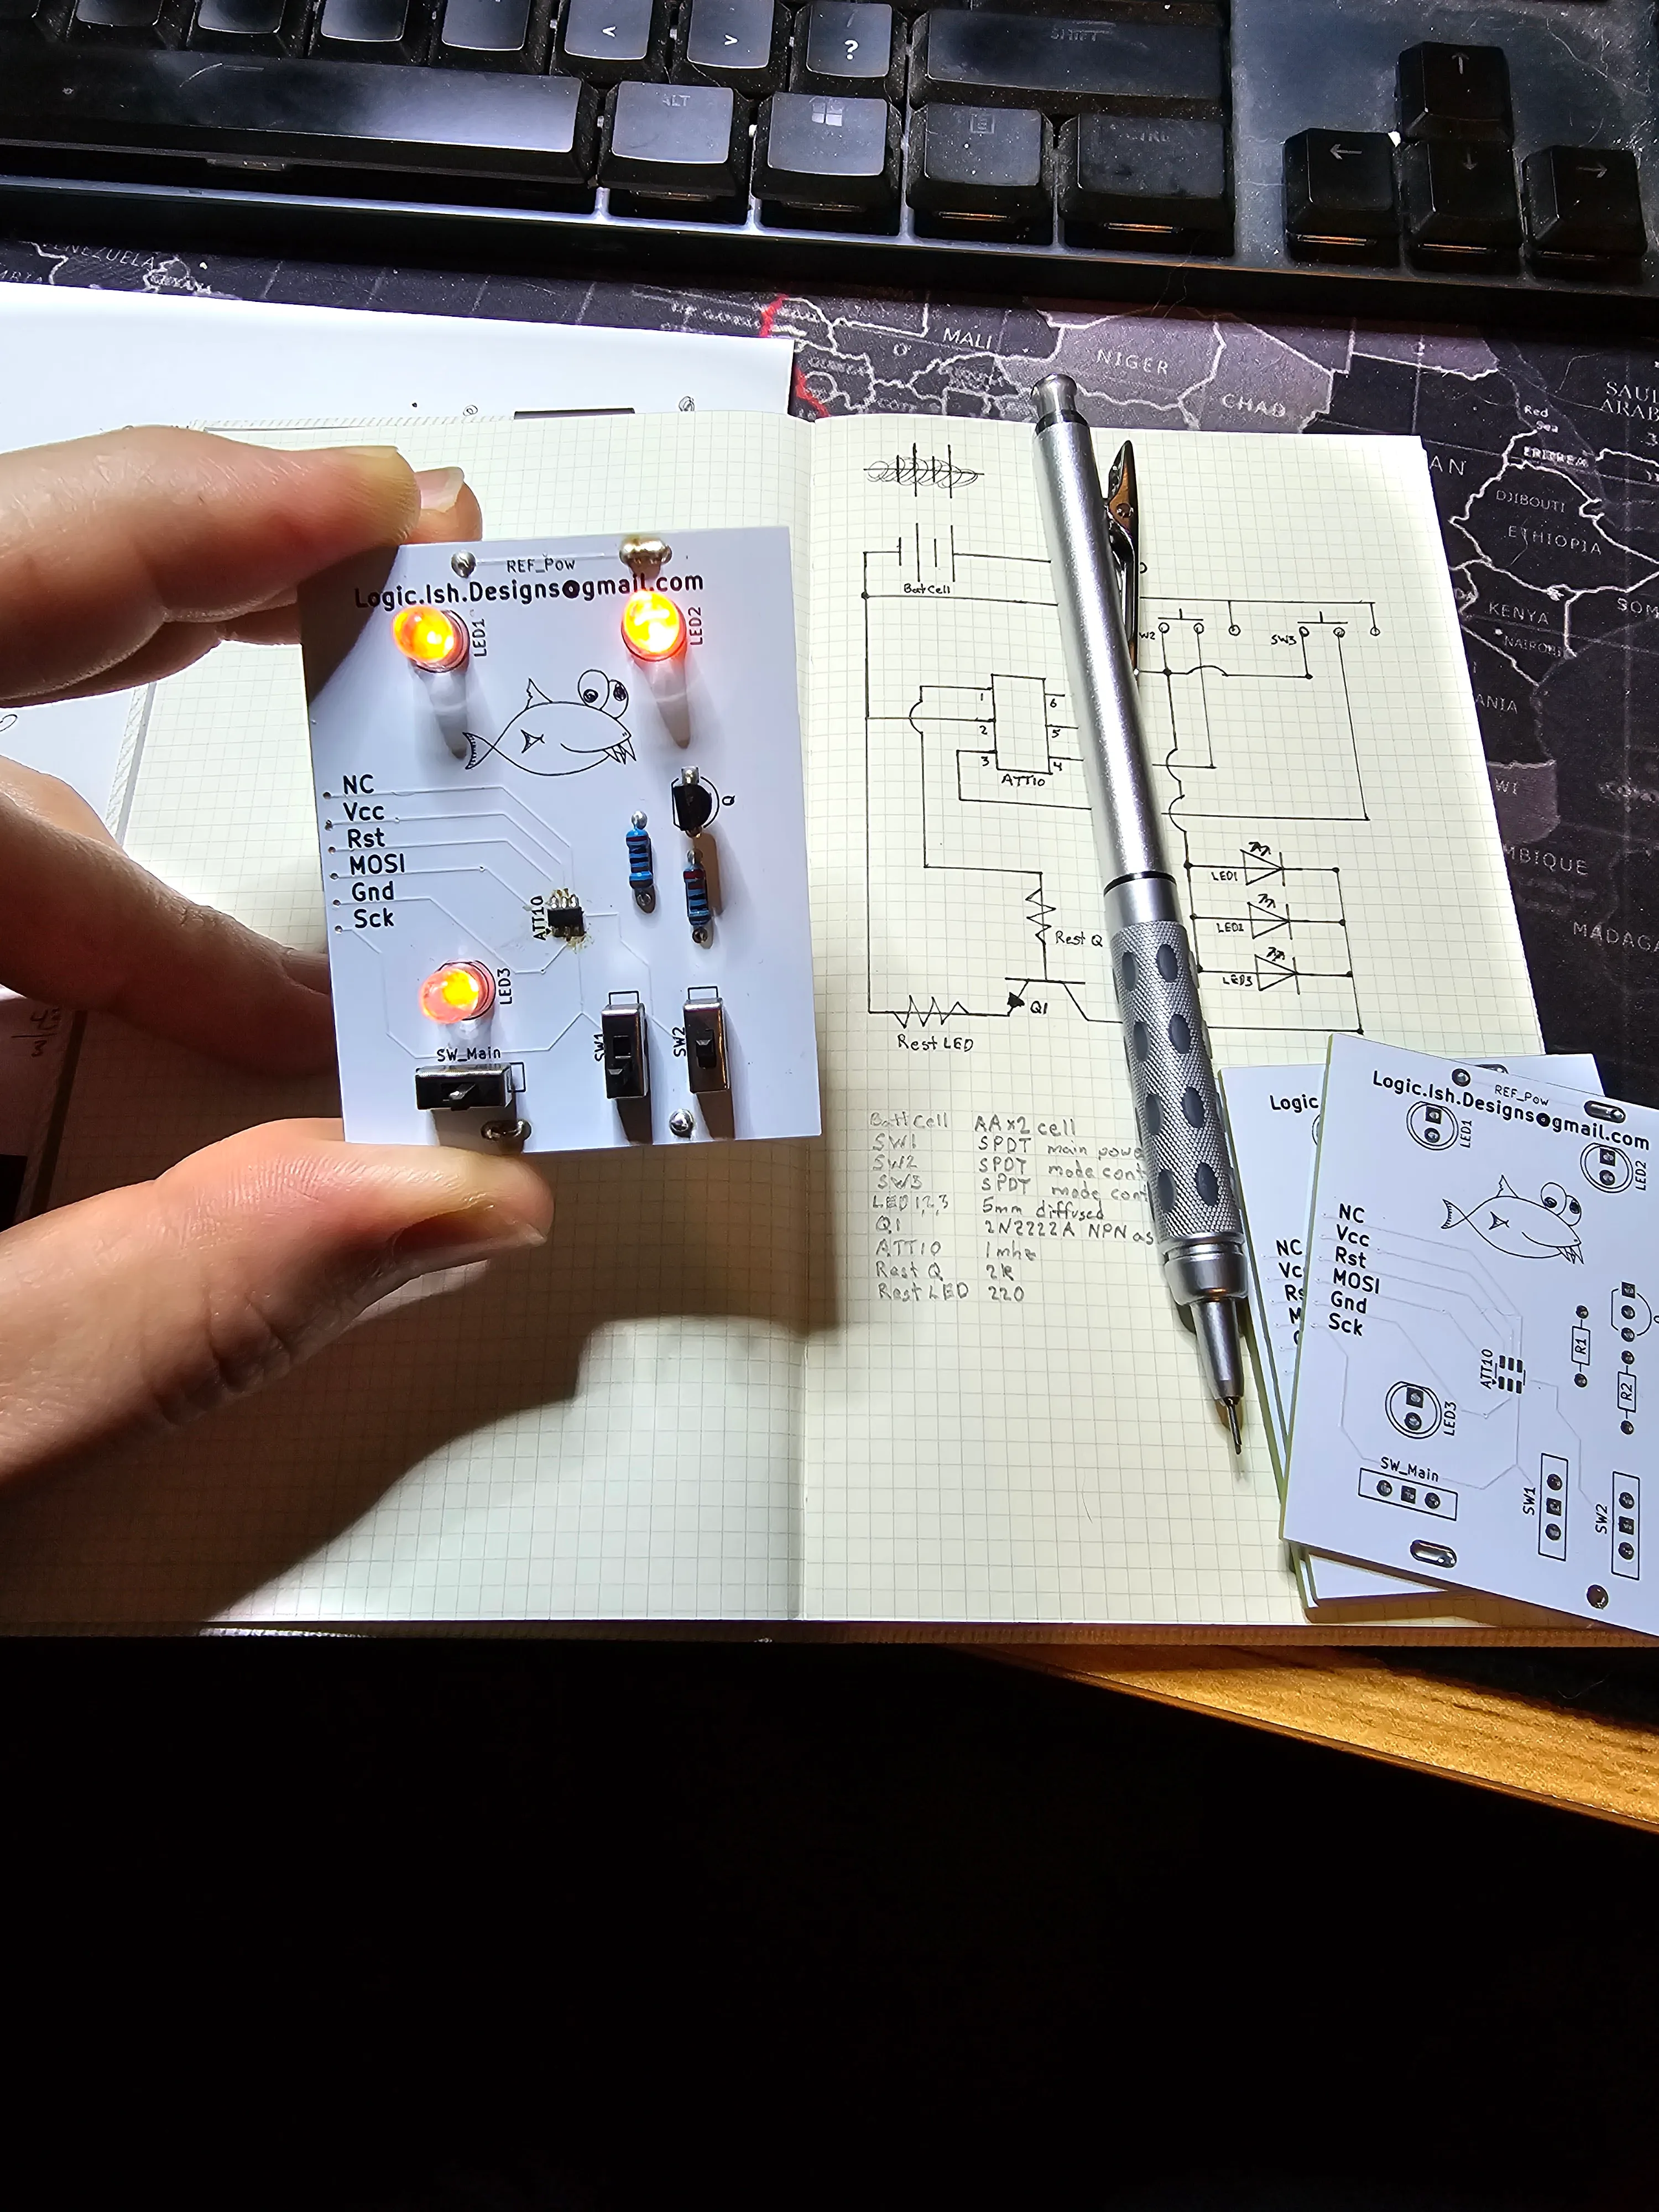 <
>
?
SHIFT
ALT
VENEZUELA
MALI
NIGER
CHAD
SAUDI
ARAB
Red
Sea
ERITREA
DJIBOUTI
ETHIOPIA
KENYA
NAIROBI
SOM
MBIQUE
MADAGA
REF_Pow
Logic.Ish.Designs@gmail.com
LED1
LED2
NC
Vcc
Rst
MOSI
Gnd
Sck
Q
ATT10
LED3
SW_Main
SW1
SW2
BatCell
W2
SW3
1
2
3
6
5
4
ATT10
LED1
LED2
LED3
Rest Q
Q1
Rest LED
Batt Cell AA x2 cell
SW1 SPDT main powe
SW2 SPDT mode cont
SW3 SPDT mode cont
LED 1,2,3 5mm diffused
Q1 2N2222A NPN as
ATT10 1mhz
Rest Q 2k
Rest LED 220
Logic
NC
REF_Pow
Logic.Ish.Designs@gmail.com
LED1
LED2
NC
Vcc
Rst
MOSI
Gnd
Sck
ATT10
R1
R2
LED3
SW_Main
SW1
SW2